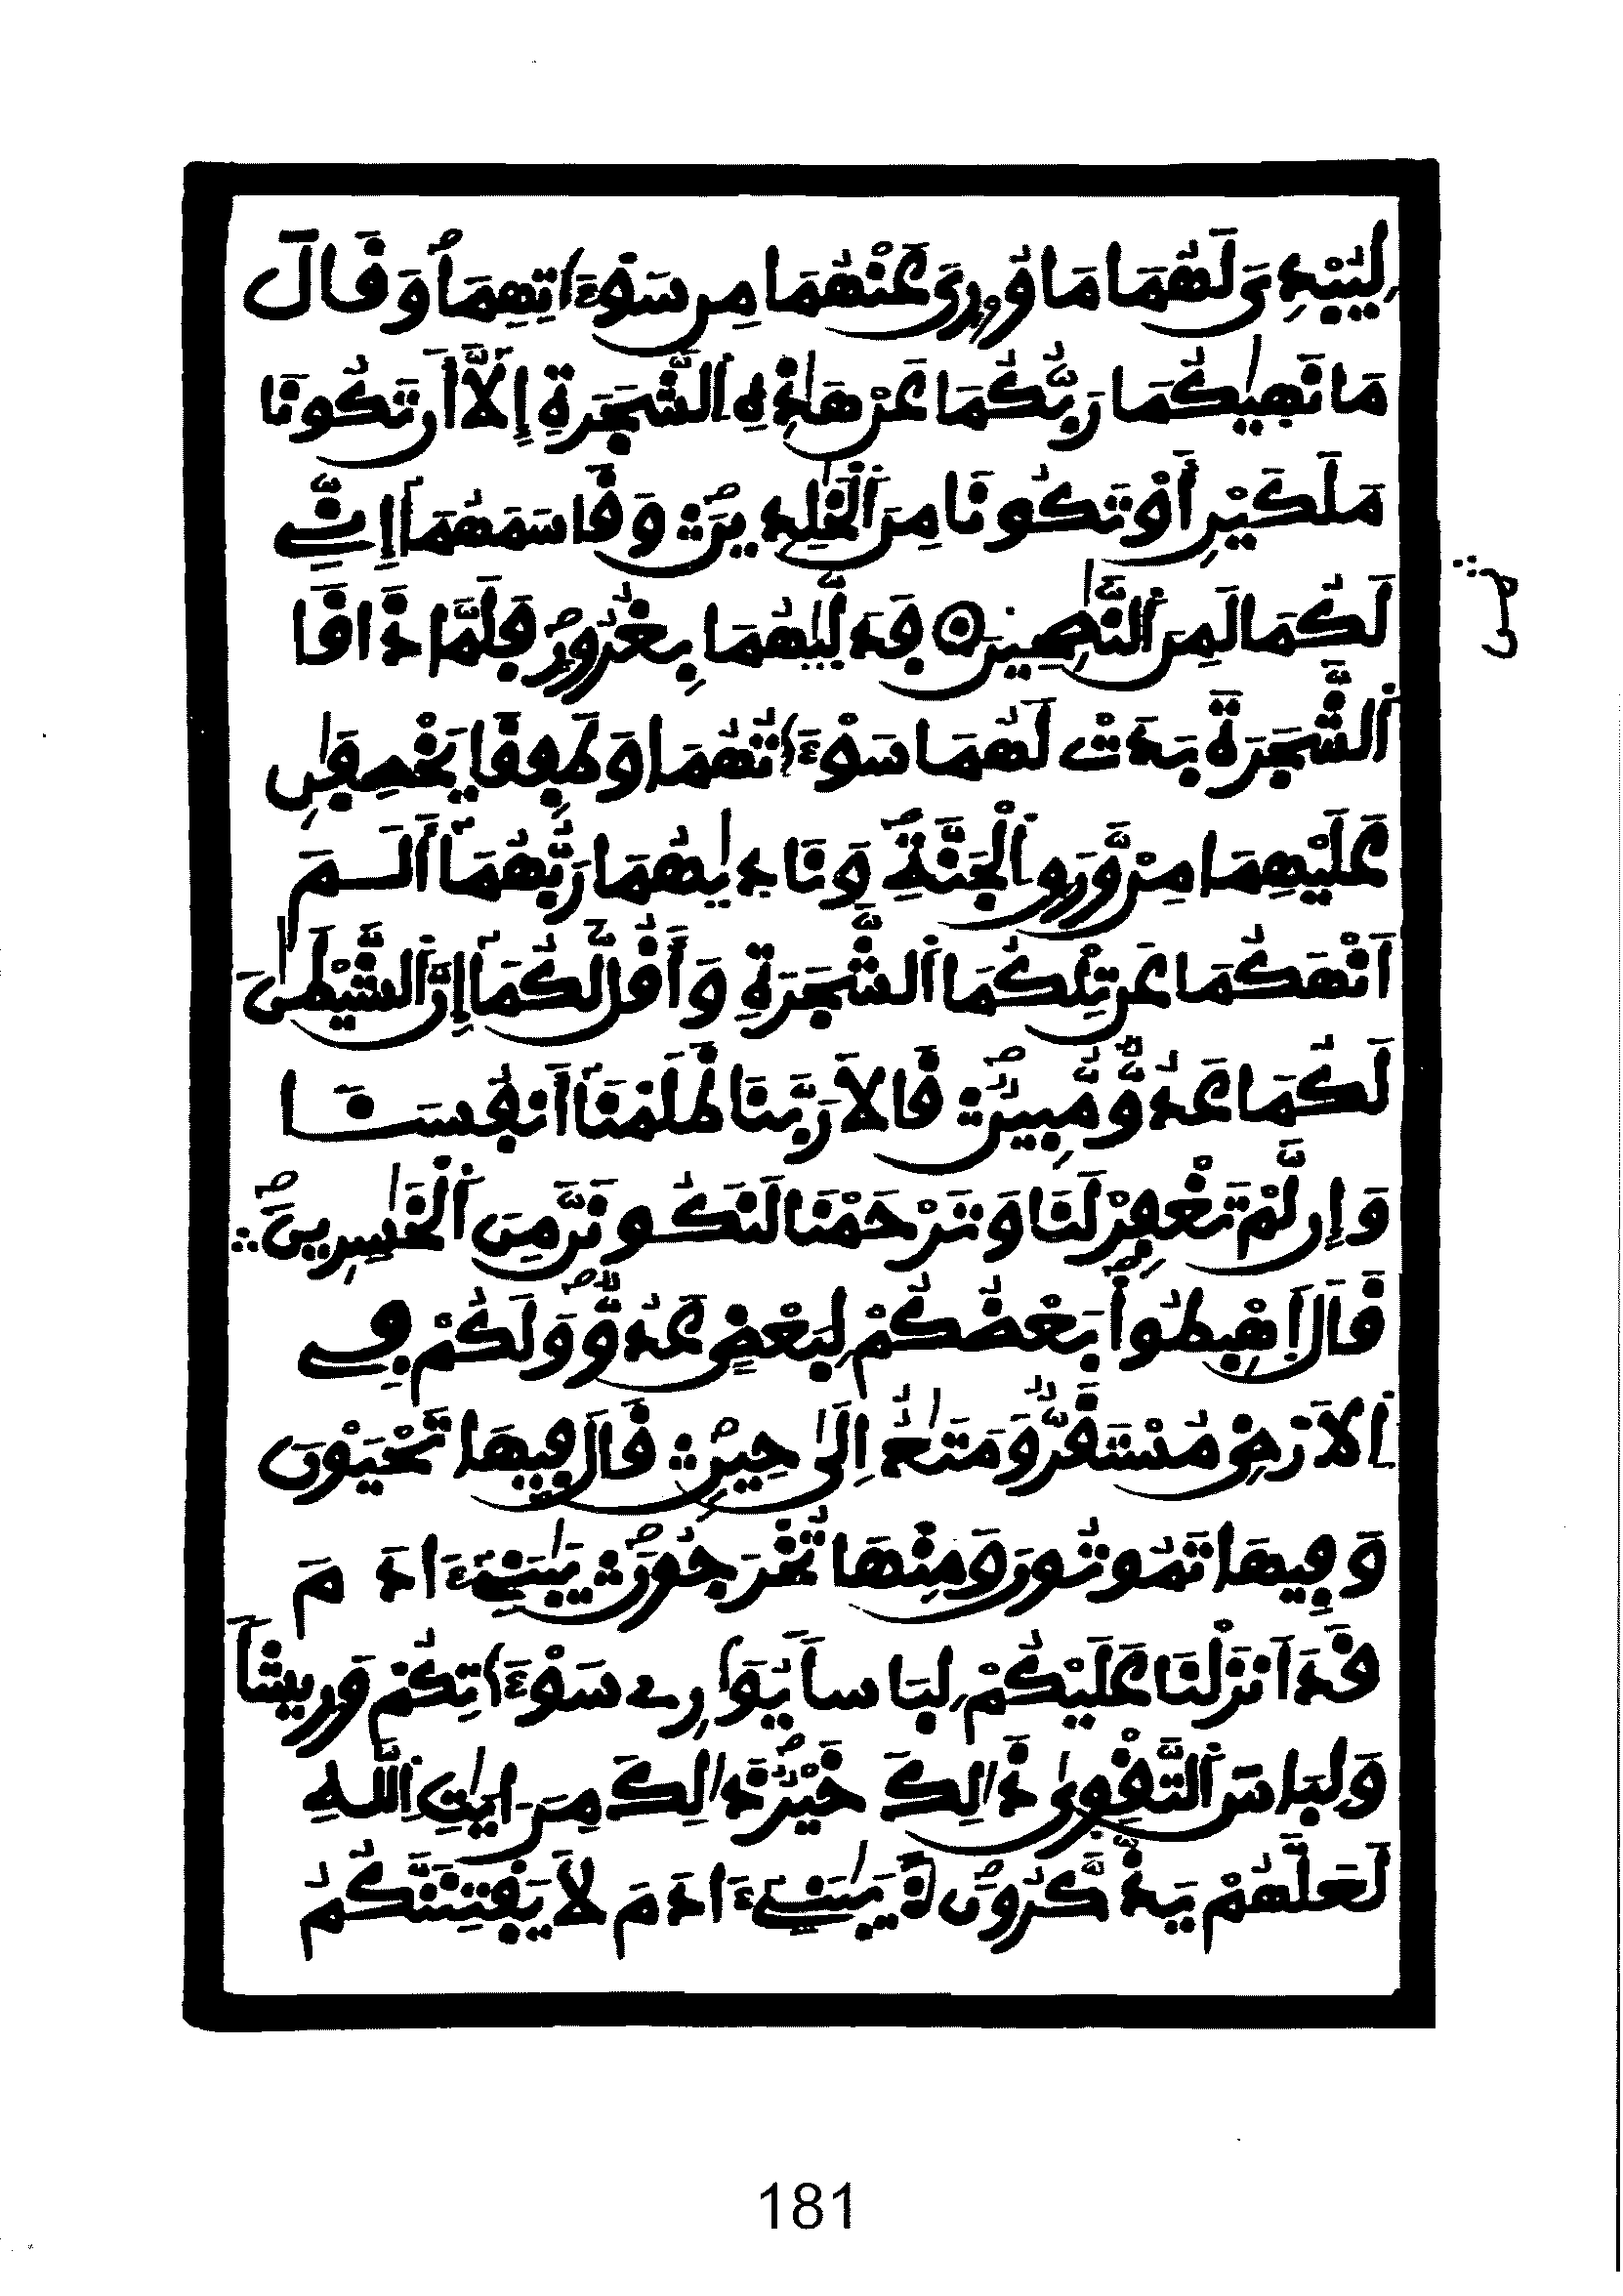 لِيُبْدِيَ لَهُمَا مَا وُۥرِيَ عَنْهُمَا مِن سَوْءَٰتِهِمَا وَقَالَ
مَا نَهَيٰكُمَا رَبُّكُمَا عَنْ هَٰذِهِ اِ۬لشَّجَرَةِ إِلَّآ أَن تَكُونَا
مَلَكَيْنِ أَوْ تَكُونَا مِنَ اَ۬لْخَٰلِدِينَ ۝ وَقَاسَمَهُمَآ إِنِّے
لَكُمَا لَمِنَ اَ۬لنَّٰصِحِينَ ۝ فَدَلَّيٰهُمَا بِغُرُورٍ فَلَمَّا ذَاقَا
اَ۬لشَّجَرَةَ بَدَتْ لَهُمَا سَوْءَٰتُهُمَا وَطَفِقَا يَخْصِفَٰنِ
عَلَيْهِمَا مِنْ وَّرَقِ اِ۬لْجَنَّةِ وَنَادٜيٰهُمَا رَبُّهُمَآ أَلَمَ
اَنْهَكُمَا عَن تِلْكُمَا اَ۬لشَّجَرَةِ وَأَقُل لَّكُمَآ إِنَّ اَ۬لشَّيْطَٰنَ
لَكُمَا عَدُوّٞ مُّبِينٞ ۝ قَالَا رَبَّنَا ظَلَمْنَآ أَنفُسَنَا
وَإِن لَّمْ تَغْفِرْ لَنَا وَتَرْحَمْنَا لَنَكُونَنَّ مِنَ اَ۬لْخَٰسِرِينَ ۝
قَالَ اَ۪هْبِطُواْ بَعْضُكُمْ لِبَعْضٍ عَدُوّٞ وَلَكُمْ فِے
اِ۬لَارْضِ مُسْتَقَرّٞ وَمَتَٰعٌ اِلَىٰ حِينٖ ۝ قَالَ فِيهَا تَحْيَوْنَ
وَفِيهَا تَمُوتُونَ وَمِنْهَا تُخْرَجُونَ ۝ يَٰبَنِےٓ ءَادَمَ
قَدَ اَنزَلْنَا عَلَيْكُمْ لِبَاساٗ يُوَٰرِے سَوْءَٰتِكُمْ وَرِيشاٗ
وَلِبَاسَ اَ۬لتَّقْوٜىٰ ذَٰلِكَ خَيْرٞ ذَٰلِكَ مِنَ اٰيَٰتِ اِ۬للَّهِ
لَعَلَّهُمْ يَذَّكَّرُونَ ۝ يَٰبَنِےٓ ءَادَمَ لَا يَفْتِنَنَّكُمُ
181